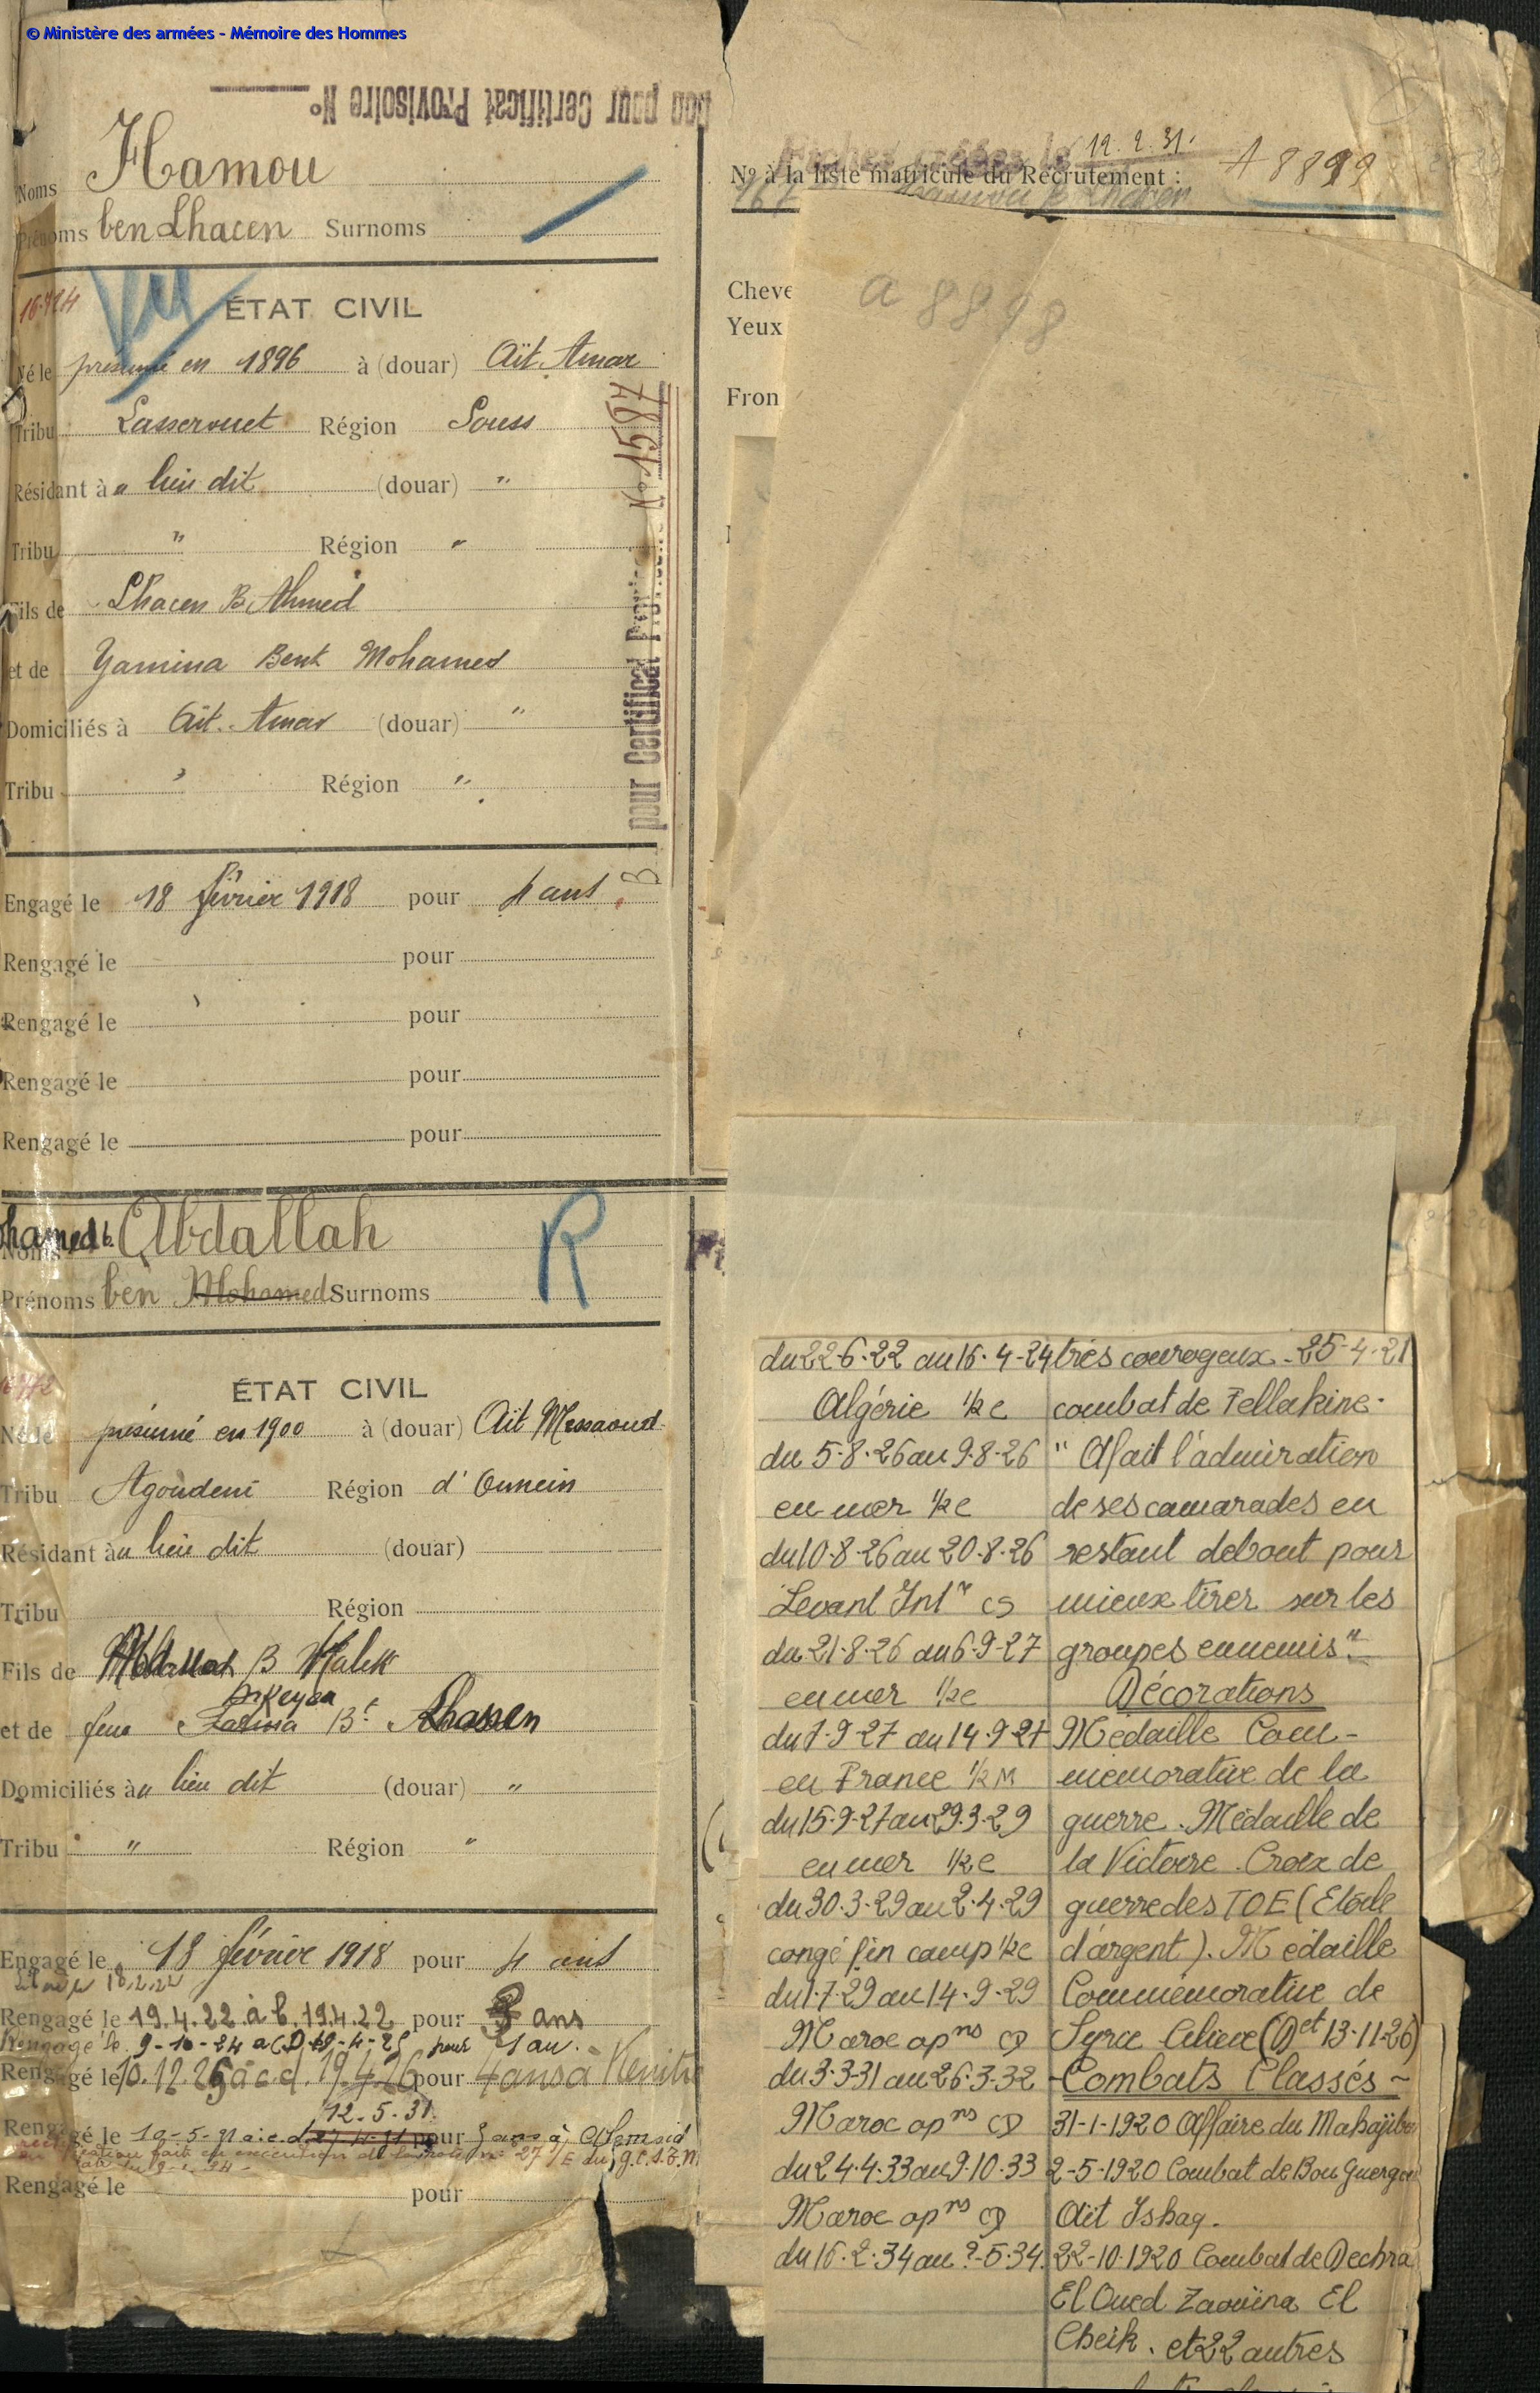 © Ministère des armées - Mémoire des Hommes
Bon pour Certificat Provisoire N°
Noms Hamou
Prénoms ben Lhacen Surnoms
16.724
Vu
ÉTAT CIVIL
Né le présumé en 1896 à (douar) Aït Amar
Tribu Lasserouet Région Souss
Résidant à u lieu dit (douar) "
Tribu " Région "
Fils de Lhacen B. Ahmed
et de Yamina Bent Mohamed
Domiciliés à Aït. Amar (douar) "
Tribu " Région "
pour Certificat N° 1587
B
Engagé le 18 février 1918 pour 4 ans
Rengagé le pour
Rengagé le pour
Rengagé le pour
Rengagé le pour
Mohamed b. Abdallah
Noms
Prénoms ben Mohamed Surnoms
R
ÉTAT CIVIL
Né le présumé en 1900 à (douar) Aït Messaoud
Tribu Agoudeni Région d'Ounein
Résidant à u lieu dit (douar)
Tribu Région
Fils de B Malek
et de feue Bt Lhassen
Domiciliés à u lieu dit (douar) "
Tribu " Région "
Engagé le 18 février 1918 pour 4 ans
Rengagé le 19.4.22 à b. 19.4.22 pour 3 ans
Rengagé le 9-10-24 a c D. 19-4-25 pour 1 an.
Rengagé le 10.12.25 à c. d. 19.4.26 pour 4 ans à Kenitra
12-5-31
Rengagé le pour 3 ans à
Rengagé le pour
12.2.31.
N° à la liste matricule du Recrutement : A 8899
Cheve
Yeux
Fron
a 8898
du 22-6-22 au 16-4-24
Algérie ½ c
du 5-8-26 au 9-8-26
en mer ½ c
du 10-8-26 au 20-8-26
Levant Intr cs
du 21-8-26 au 6-9-27
en mer ½ c
du 7-9-27 au 14-9-27
en France ½ M
du 15-9-27 au 29.3-29
en mer ½ c
du 30-3-29 au 2-4-29
congé fin camp ½ c
du 1-7-29 au 14-9-29
Maroc opns CD
du 3-3-31 au 26-3-32
Maroc opns CD
du 24-4-33 au 9-10-33
Maroc opns CD
du 16-2-34 au ?-5-34.
très courageux - 25-4-21
combat de Tellakine -
" A fait l'admiration
de ses camarades en
restant debout pour
mieux tirer sur les
groupes ennemis"
Décorations
Médaille Com-
mémorative de la
guerre. Médaille de
la Victoire. Croix de
guerre des TOE (Etoile
d'argent). Médaille
Commémorative de
Syrie Cilicie (Det 13-11-26)
- Combats Classés -
31-1-1920 Affaire du
2-5-1920 Combat de Bou
Aït Ishaq.
22-10-1920 Combat de Dechra
El Oued Zaouïna El
Cheik. et 22 autres